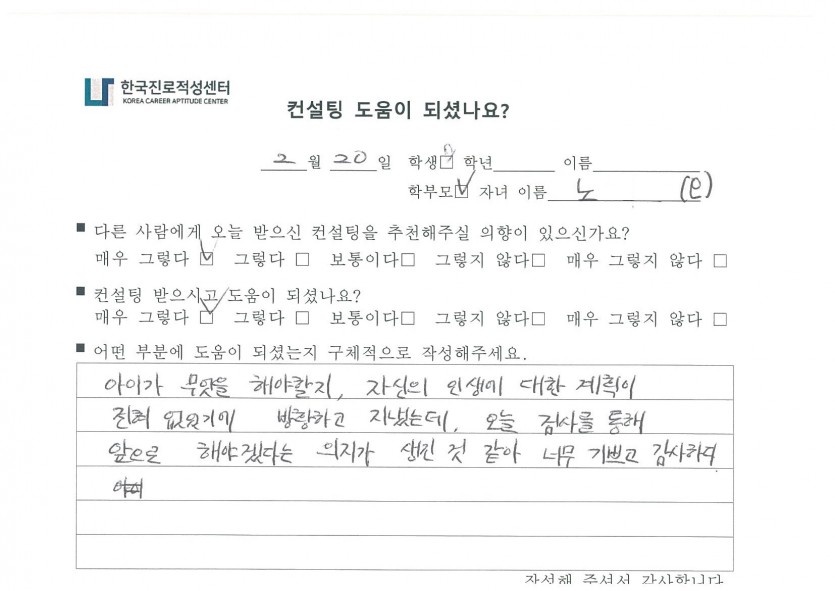 한국진로적성센터
KOREA CAREER APTITUDE CENTER
컨설팅 도움이 되셨나요?
2 월 20 일 학생□ 학년 이름
학부모☑ 자녀 이름 노
■ 다른 사람에게 오늘 받으신 컨설팅을 추천해주실 의향이 있으신가요?
매우 그렇다 ☑ 그렇다 □ 보통이다□ 그렇지 않다□ 매우 그렇지 않다 □
■ 컨설팅 받으시고 도움이 되셨나요?
매우 그렇다 ☑ 그렇다 □ 보통이다□ 그렇지 않다□ 매우 그렇지 않다 □
■ 어떤 부분에 도움이 되셨는지 구체적으로 작성해주세요.
아이가 무엇을 해야할지, 자신의 인생에 대한 계획이
전혀 없었기에 방황하고 지냈는데, 오늘 검사를 통해
앞으로 해야겠다는 의지가 생긴 것 같아 너무 기쁘고 감사하다
작성해 주셔서 감사합니다